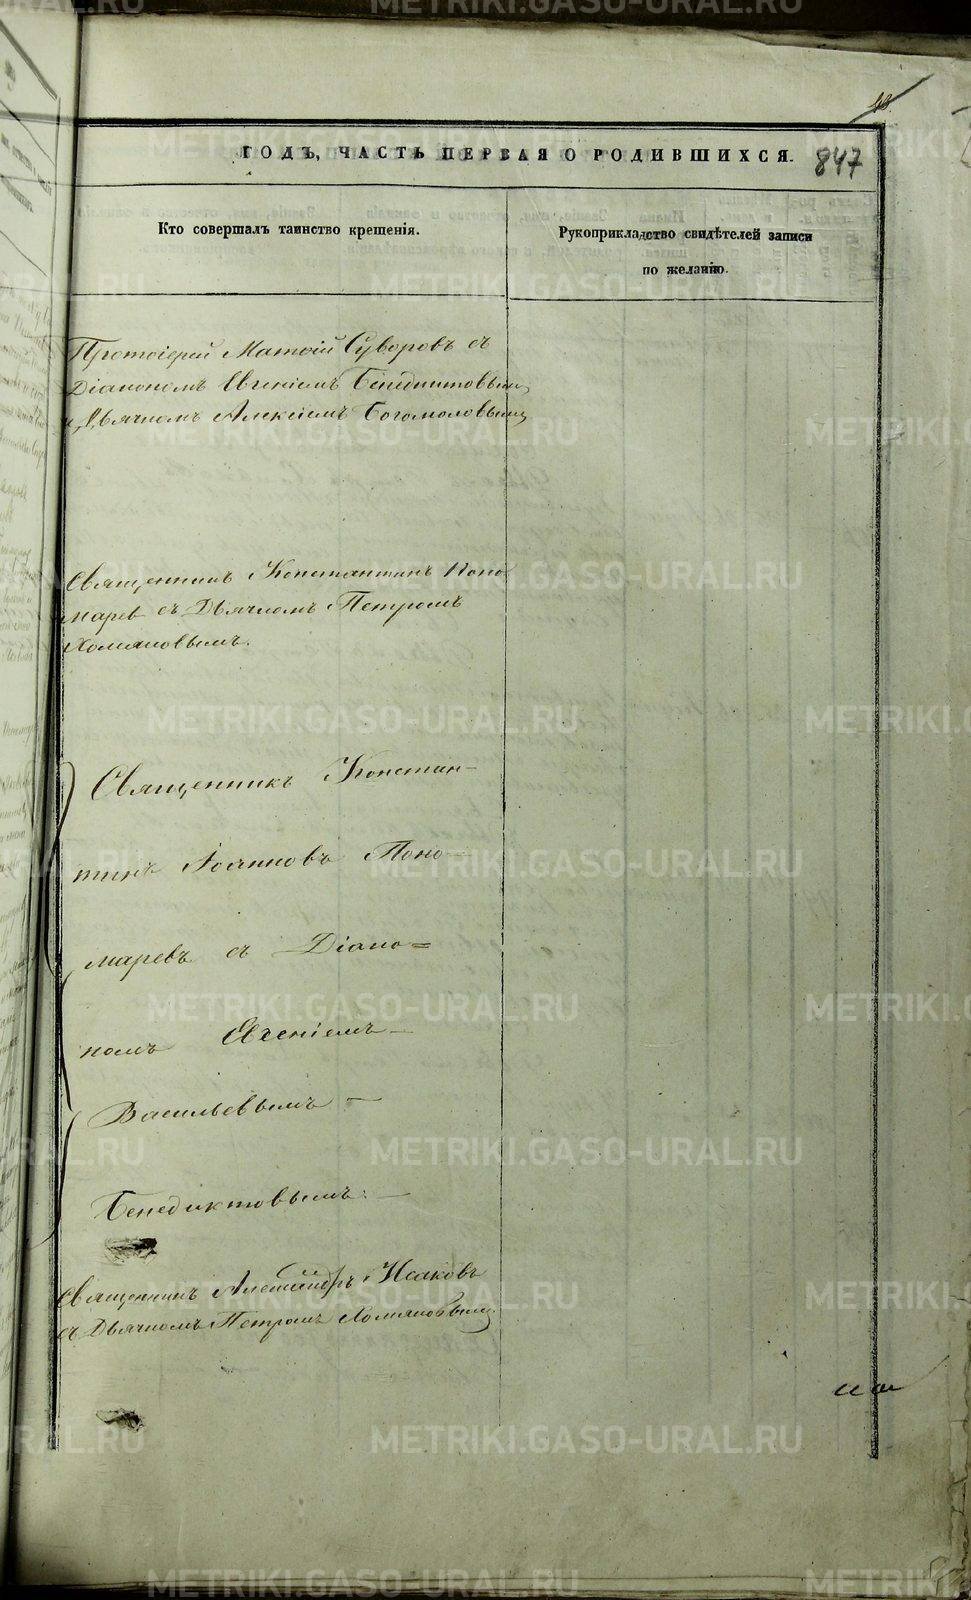 48.
ГОДЪ, ЧАСТЬ ПЕРВАЯ О РОДИВШИХСЯ.
847
Кто совершалъ таинство крещенія.
Рукоприкладство свидѣтелей записи
по желанію.
Протоіерей Матѳій Суворовъ съ
Діакономъ Евгеніемъ Бенедиктовымъ
и Дьячкомъ Алексіемъ Богомоловымъ
Священникъ Константинъ Поно
марев съ Дьячкомъ Петромъ
Хомяковымъ.
Священникъ Констан-
тинъ Іоанновъ Поно-
маревъ съ Діако=
номъ Евгеніемъ-
Васильевымъ-
Бенедиктовымъ:-
Священникъ Александръ Исаковъ
съ Дьячкомъ Петромъ Хомяковымъ
METRIKI.GASO-URAL.RU